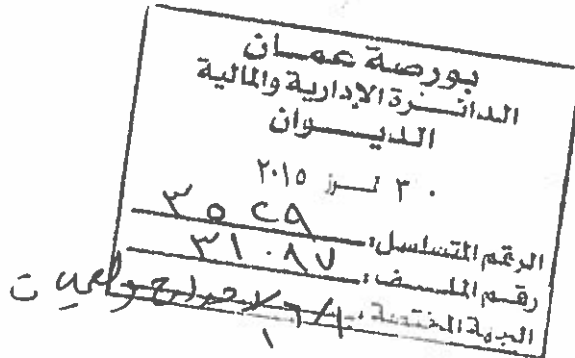 بورصة عمان
الدائرة الإدارية والمالية
الديوان
٣٠ تموز ٢٠١٥
الرقم المتسلسل: ٣٥٢٩
رقم الملف: ٣١٠٨٧
الجهة المختصة: